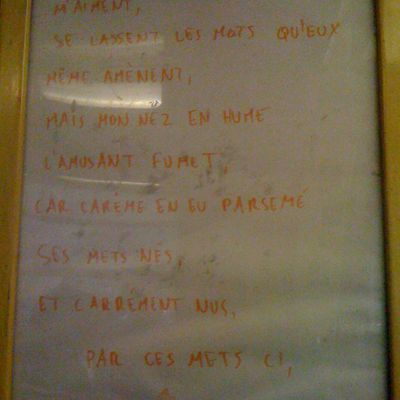 M'AIMENT,
SE LASSENT LES MOTS QU'EUX
MÊME AMÈNENT,
MAIS MON NEZ EN HUME
L'AMUSANT FUMET,
CAR CARÈME EN EU PARSEMÉ
SES METS NÉS,
ET CARRÉMENT NUS,
PAR CES METS CI,